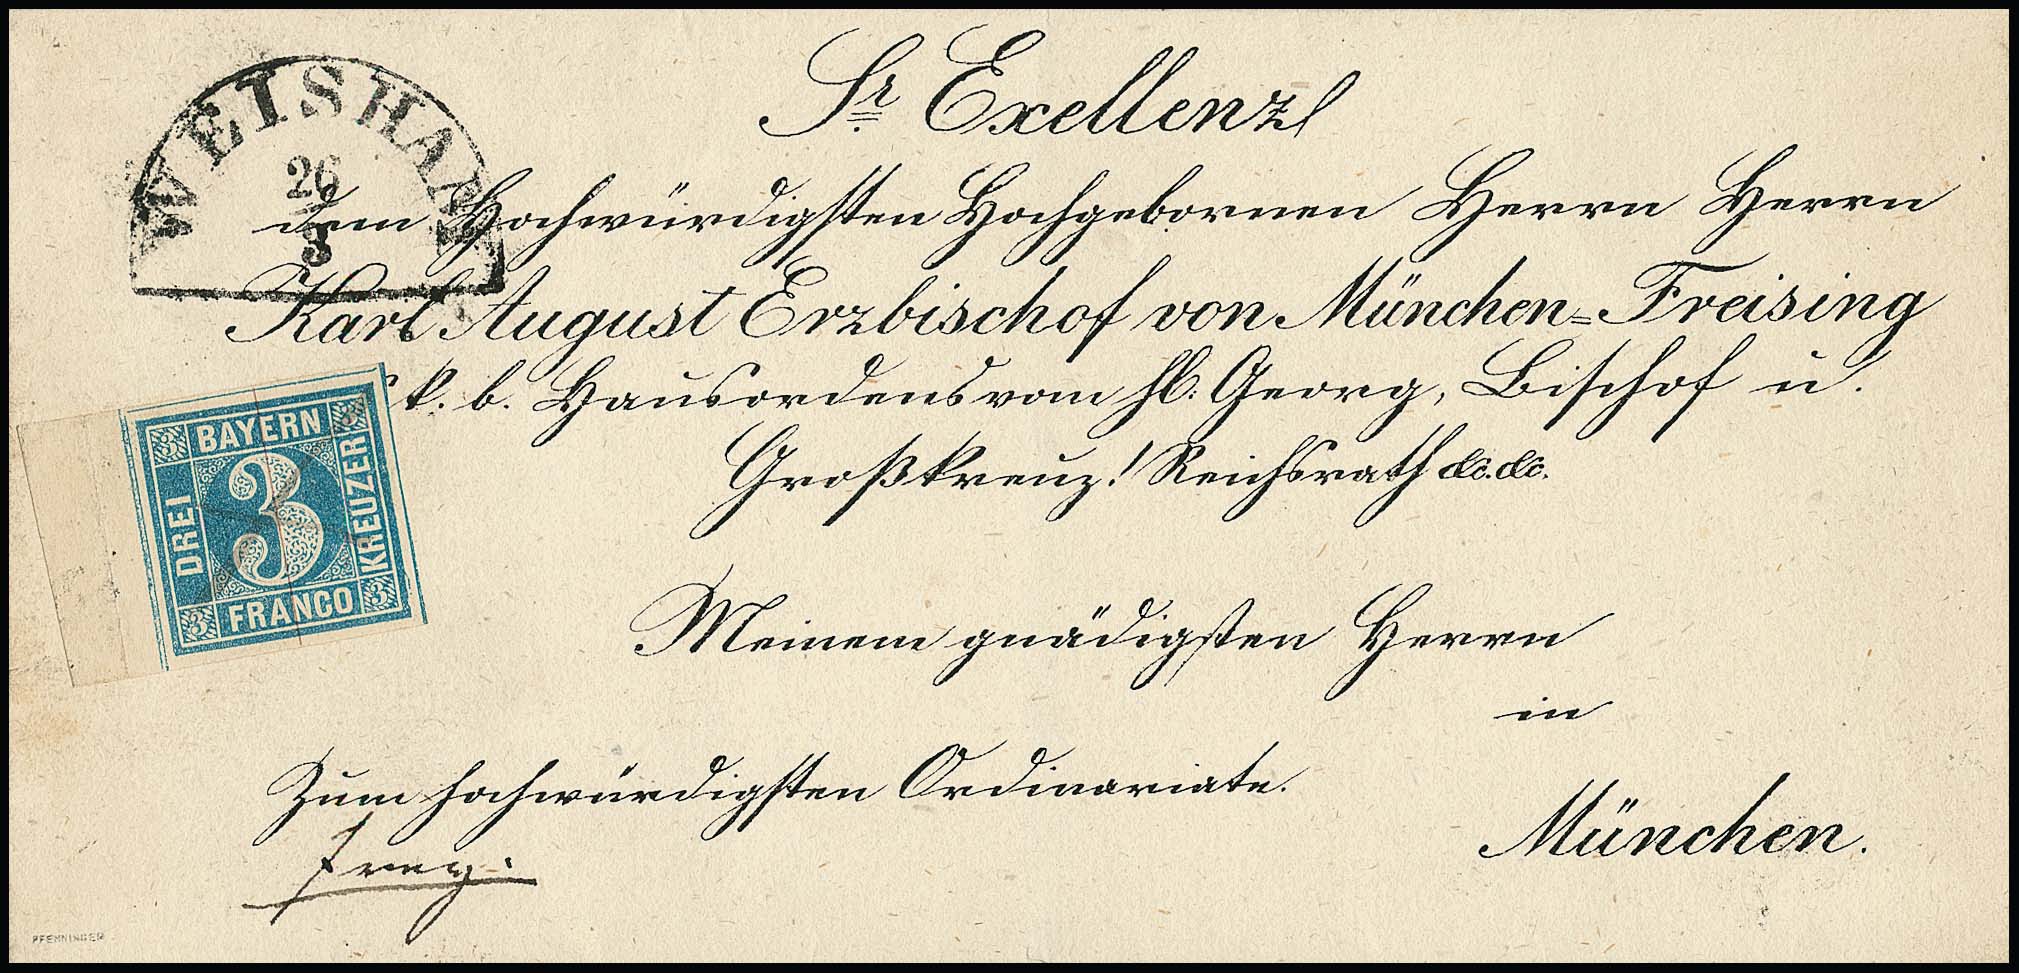 WEISHAM
26
3
Sr. Exellenz
dem Hochwürdigsten Hochgebornen Herrn Herrn
Karl August Erzbischof von München=Freising
k. b. Hausordens vom hl. Georg, Bischof u.
Großkreuz! Reichsrath &c. &c.
BAYERN
DREI
3
KREUZER
FRANCO
3
3
3
3
Meinem gnädigsten Herrn
in
Zum hochwürdigsten Ordinariate.
München.
frey.
PFENNINGER